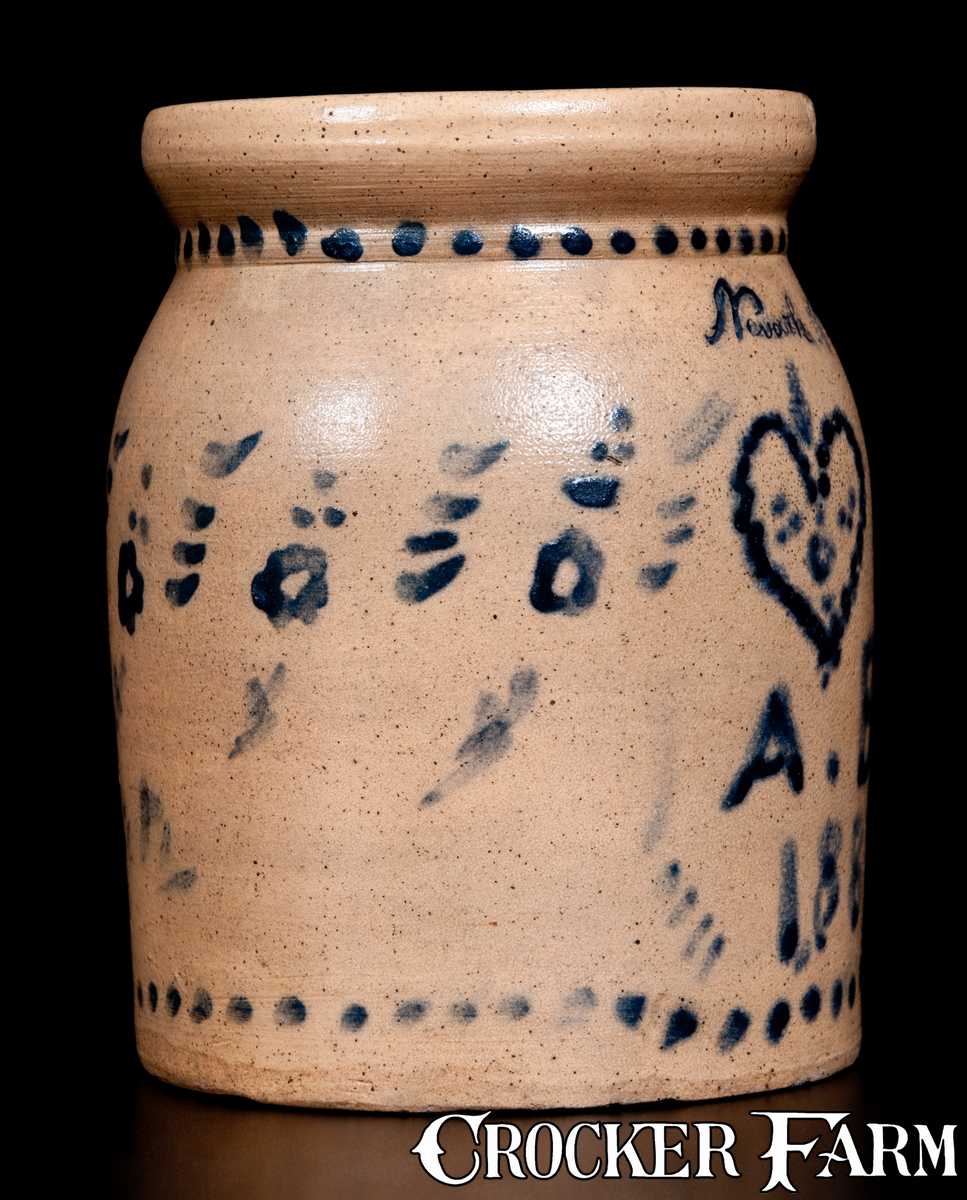 Newark
A.
188
CROCKER FARM